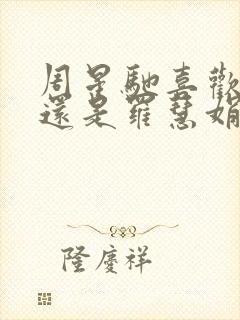 周星馳喜歡
還是羅慧娟
隆慶祥